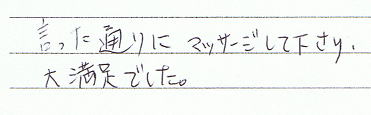 言った通りにマッサージして下さり、
大満足でした。